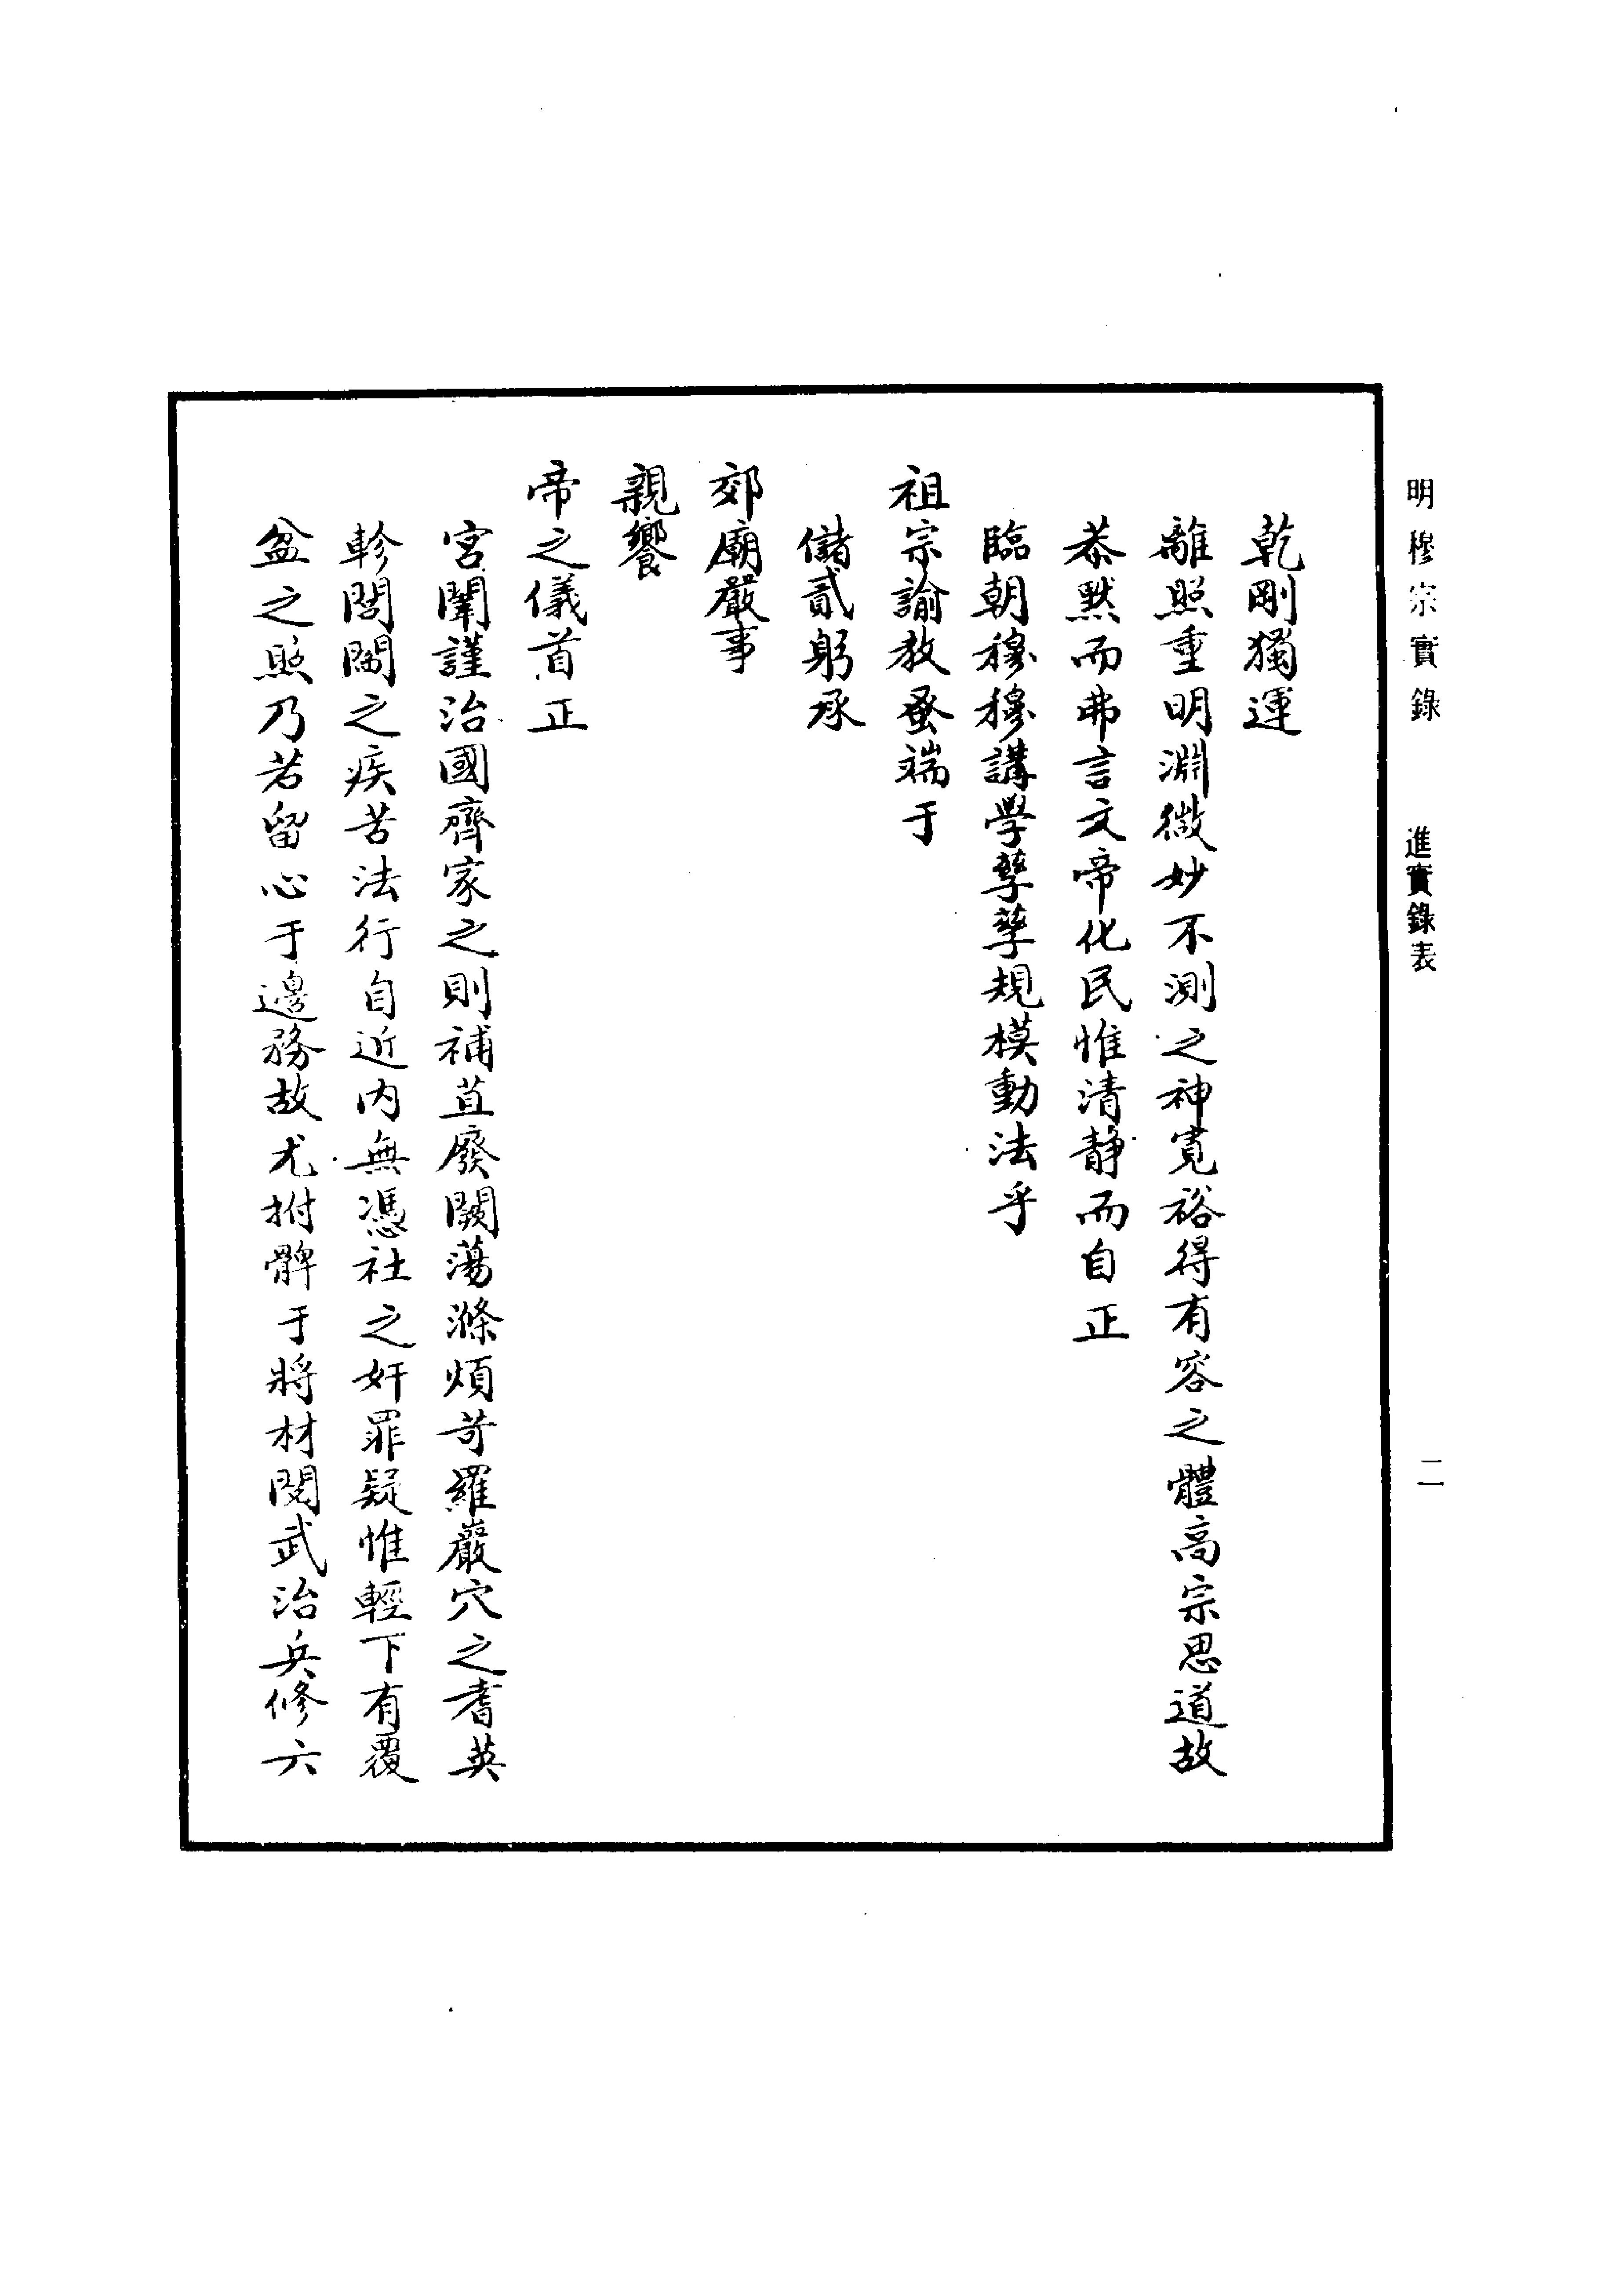 明穆宗實錄 進實錄表 二
乾剛獨運
離照重明淵微妙不測之神寬裕得有容之體高宗思道故
恭默而弗言文帝化民惟清靜而自正
臨朝穆穆講學孳孳規模動法乎
祖宗諭教蚤端于
儲貳躬承
郊廟嚴事
親饗
帝之儀首正
宮闈謹治國齊家之則補苴廢闕蕩滌煩苛羅巖穴之耆英
軫閭閻之疾苦法行自近內無憑社之奸罪疑惟輕下有覆
盆之照乃若留心于邊務故尤拊髀于將材閱武治兵修六